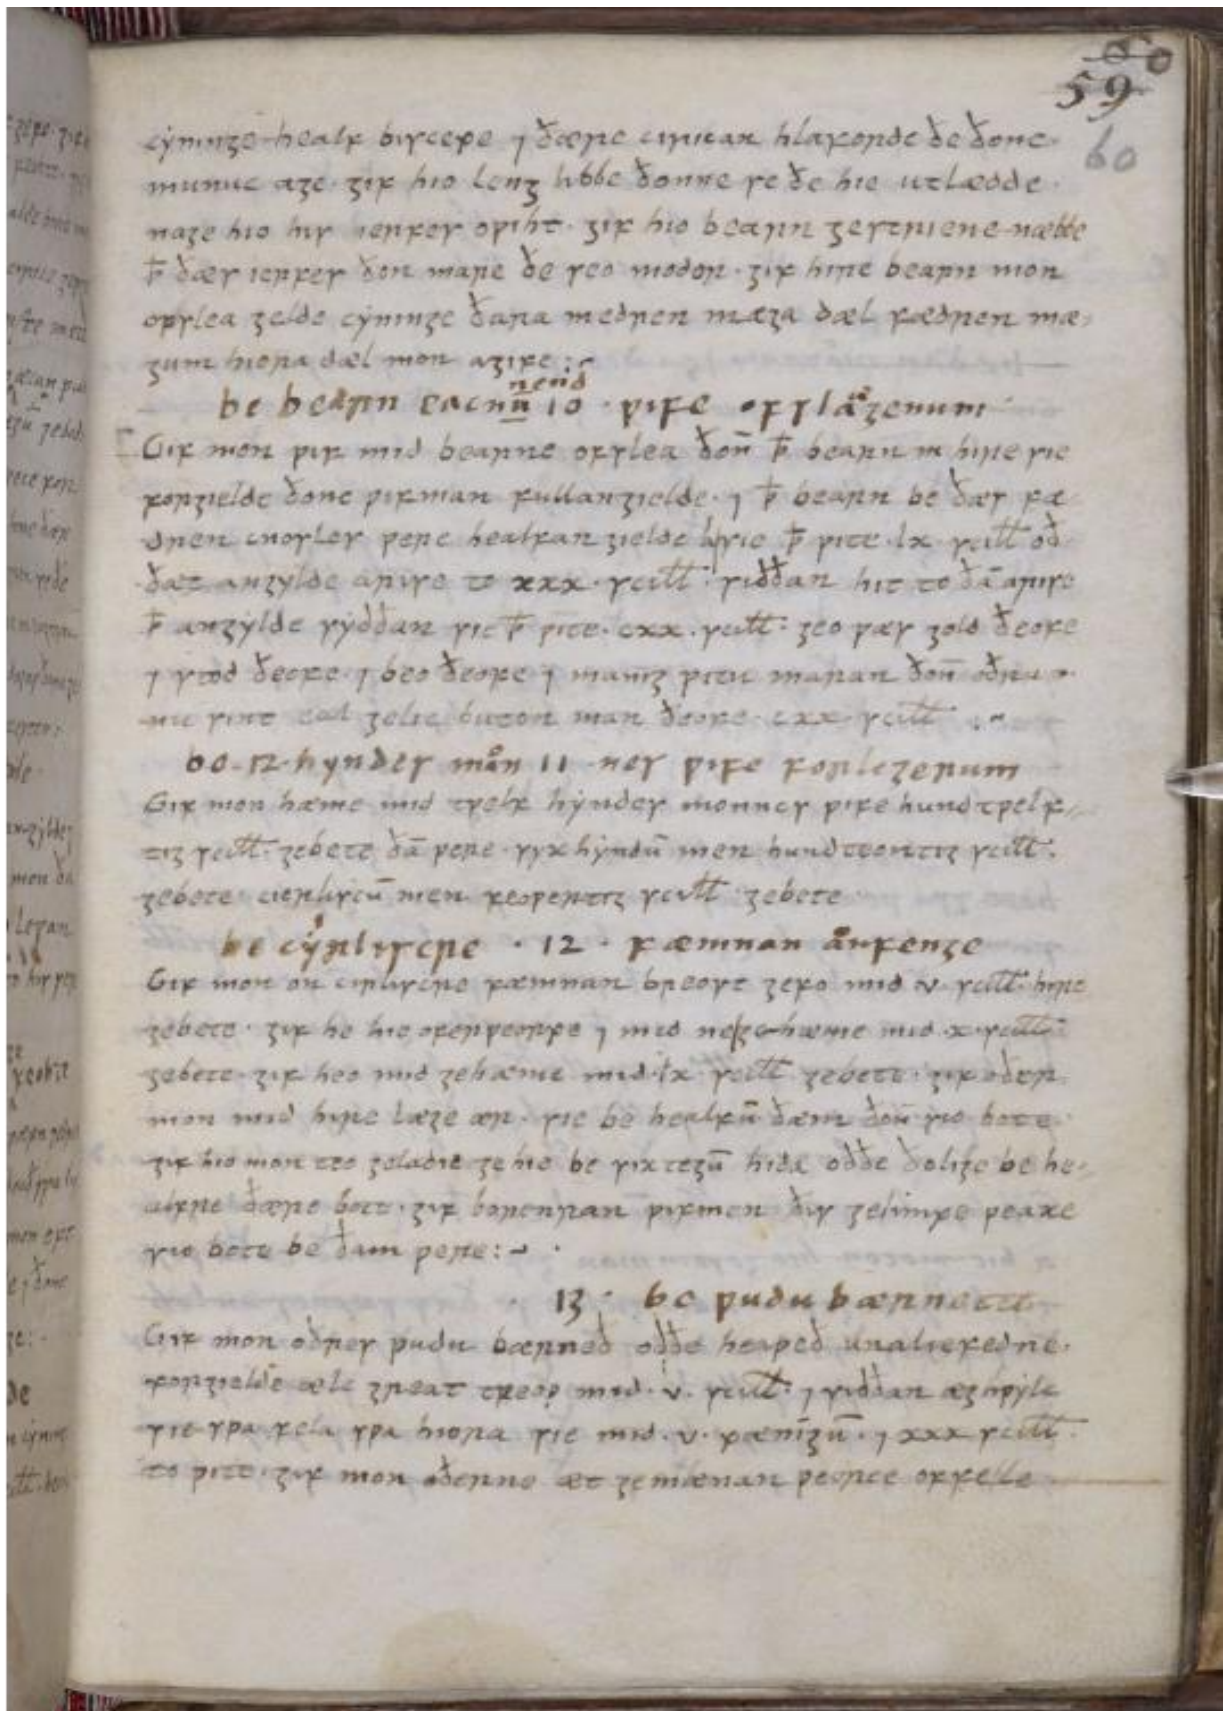 59
60
cyninge healf biscepe ⁊ ðære cirican hlaforde ðe ðone
munuc age · gif hio leng libbe ðonne se ðe hie utlædde ·
nage hio his ierfes oƿiht · gif hio bearn gestriene næbbe
ꝥ ðæs ierfes ðon mare ðe seo modor · gif hire bearn mon
ofslea gelde cyninge ðara medren mæga dæl fædren mæ
gum hiora dæl mon agife :
be bearn eacnū nend 10 · ƿife ofslægenum
Gif mon ƿif mid bearne ofslea ðoñ ꝥ bearn in hire sie
forgielde ðone ƿifman fullan gielde · ⁊ ꝥ bearn be ðæs fæ
dren cnosles ƿere healfan gielde a sie ꝥ ƿite · lx · scill oð
ðæt angylde arise to xxx · scill · siððan hit to ðā arise
ꝥ angylde syððan sie ꝥ ƿite · cxx · scill : geo ƿæs gold ðeofe
⁊ stod ðeofe · ⁊ beo ðeofe ⁊ manig ƿitu maran ðoñ oðru ·
nu sint eal gelic buton man ðeofe · cxx · scill :~
be · 12 · hyndes man 11 nes ƿife forlegenum
Gif mon hæme mid tƿelf hyndes monnes ƿife hundtƿelf
tig scill · gebete ðā ƿere · syx hyndū men hundteontig scill ·
gebete · cierliscū men feoƿertig scill · gebete
be cyrliscre · 12 · fæmnan anfenge
Gif mon on cirliscre fæmnan breost gefo mid · v · scill · hire
gebete · gif he hie oferƿeorpe ⁊ mid ne gehæme mid · x · scill
gebete · gif heo mid gehæme mid · lx · scill gebete · gif oðer
mon mid hire læge ær · sie be healfū ðæm ðoñ sio bote ·
gif hio mon teo geladie gehie be sixtegū hida oððe ðolige be he
alfre ðære bote · gif borenran ƿifmen ðis gelimpe ƿeaxe
sio bote be ðam ƿere : ~ ·
· 13 · be ƿudu bærnette
Gif mon oðres ƿudu bærneð oððe heaƿeð unaliefedne ·
forgielde ælc great treoƿ mid · v · scill · ⁊ siððan æghƿylc
sie sƿa fela sƿa hiora sie mid · v · pænīgū · ⁊ xxx scill ·
to ƿite · gif mon oðerne æt gemænan ƿeorce offelle